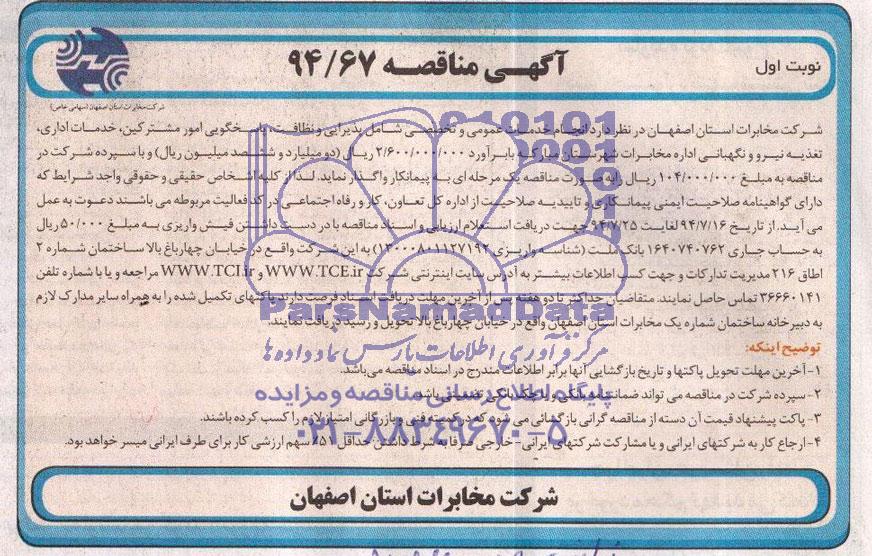 نوبت اول
آگهـی مناقصـه ۹۴/۶۷
شرکت مخابرات استان اصفهان (سهامی خاص)
شرکت مخابرات استان اصفهان در نظر دارد انجام خدمات عمومی و تخصصی شامل پذیرایی و نظافت، پاسخگویی امور مشترکین، خدمات اداری،
تغذیه نیرو و نگهبانی اداره مخابرات شهرستان مبارکه با برآورد ۲/۶۰۰/۰۰۰/۰۰۰ ریال (دو میلیارد و ششصد میلیون ریال) و با سپرده شرکت در
مناقصه به مبلغ ۱۰۴/۰۰۰/۰۰۰ ریال را به صورت مناقصه یک مرحله ای به پیمانکار واگذار نماید. لذا از کلیه اشخاص حقیقی و حقوقی واجد شرایط که
دارای گواهینامه صلاحیت ایمنی پیمانکاری و تاییدیه صلاحیت از اداره کل تعاون، کار و رفاه اجتماعی در کد فعالیت مربوطه می باشند دعوت به عمل
می آید. از تاریخ ۹۴/۷/۱۶ لغایت ۹۴/۷/۲۵ جهت دریافت استعلام ارزیابی و اسناد مناقصه با در دست داشتن فیش واریزی به مبلغ ۵۰/۰۰۰ ریال
به حساب جاری ۱۶۴۰۷۴۰۷۶۲ بانک ملت (شناسه واریزی ۱۳۰۰۰۸۰۱۱۲۷۱۹۲) به این شرکت واقع در خیابان چهارباغ بالا ساختمان شماره ۲
اطاق ۲۱۶ مدیریت تدارکات و جهت کسب اطلاعات بیشتر به آدرس سایت اینترنتی شرکت WWW.TCE.ir و WWW.TCI.ir مراجعه و یا با شماره تلفن
۳۶۶۶۰۱۴۱ تماس حاصل نمایند. متقاضیان حداکثر تا دو هفته پس از آخرین مهلت دریافت اسناد فرصت دارند پاکتهای تکمیل شده را به همراه سایر مدارک لازم
به دبیرخانه ساختمان شماره یک مخابرات استان اصفهان واقع در خیابان چهارباغ بالا تحویل و رسید دریافت نمایند.
توضیح اینکه:
۱- آخرین مهلت تحویل پاکتها و تاریخ بازگشایی آنها برابر اطلاعات مندرج در اسناد مناقصه می‌باشد.
۲- سپرده شرکت در مناقصه می تواند ضمانتنامه بانکی و یا چک بانکی تضمینی باشد.
۳- پاکت پیشنهاد قیمت آن دسته از مناقصه گرانی بازگشائی می شود که در کمیته فنی و بازرگانی امتیاز لازم را کسب کرده باشند.
۴- ارجاع کار به شرکتهای ایرانی و یا مشارکت شرکتهای ایرانی- خارجی صرفا به شرط داشتن حداقل ۵۱٪ سهم ارزشی کار برای طرف ایرانی میسر خواهد بود.
شرکت مخابرات استان اصفهان
ParsNamadData
مرکز فرآوری اطلاعات پارس نماد داده ها
پایگاه اطلاع رسانی مناقصه و مزایده
۰۲۱-۸۸۳۴۹۶۷۰-۵